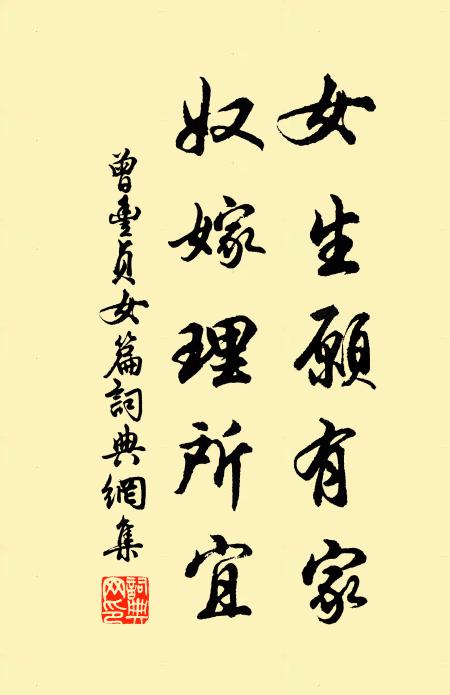 女生願有家
奴嫁理所宜
曾豐貞女篇詞典網集
詞典
网印